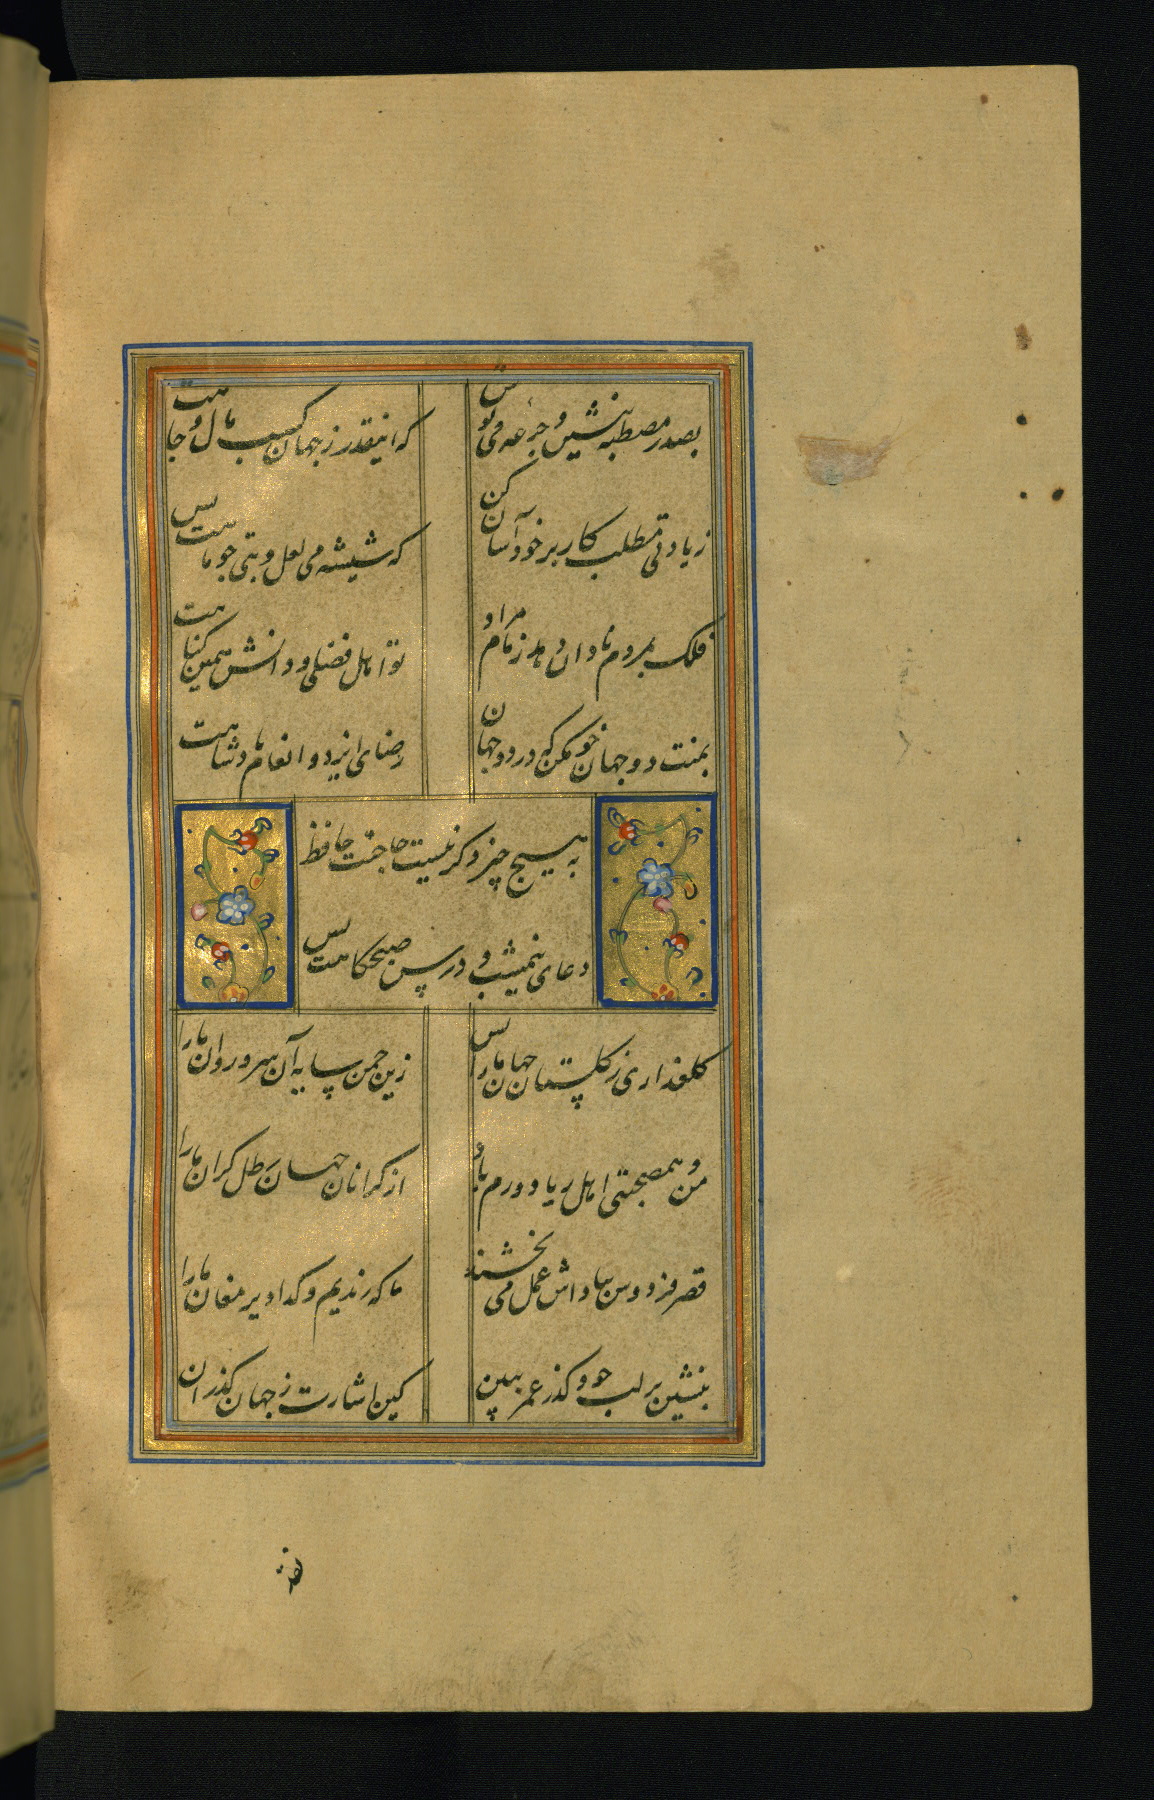 بصدر مصطبه بنشین و جرعه می نوش
که اینقدر ز جهان کسب مال و جاهت بس
زیادتی مطلب کار بر خود آسان کن
که شیشه می لعل و بتی چو ماهت بس
فلک بمردم نادان دهد زمام مراد
تو اهل فضلی و دانش همین کناهت بس
بمنت دو جهان خو مکن که در دو جهان
رضای ایزد و انعام پادشاهت بس
به هیچ چیز دکر نیست حاجت حافظ
دعای نیمشب و درس صبحکاهت بس
کلعذاری ز کلستان جهان ما را بس
زین چمن سایه آن سرو روان ما را
من و همصحبتی اهل ریا دورم باد
از کرانان جهان رطل کران ما را
قصر فردوس بپاداش عمل می بخشند
ما که رندیم و کدا دیر مغان ما را
بنشین بر لب جو و کذر عمر ببین
کین اشارت ز جهان کذران